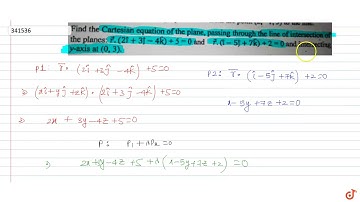 341536
Find the Cartesian equation of the plane, passing through the line of intersection of
the planes: r⃗. (2î + 3ĵ − 4k̂) + 5 = 0 and r⃗. (î − 5ĵ + 7k̂) + 2 = 0 and
y-axis at (0, 3).
P1: r̄·(2î+3ĵ−4k̂)+5=0
P2: r̄·(î−5ĵ+7k̂)+2=0
⇒ (xî+yĵ+zk̂)·(2î+3ĵ−4k̂)+5=0
x−5y+7z+2=0
⇒ 2x + 3y−4z+5=0
P: P₁+λP₂=0
⇒ 2x+3y−4z+5+λ(x−5y+7z+2)=0
doubtnut